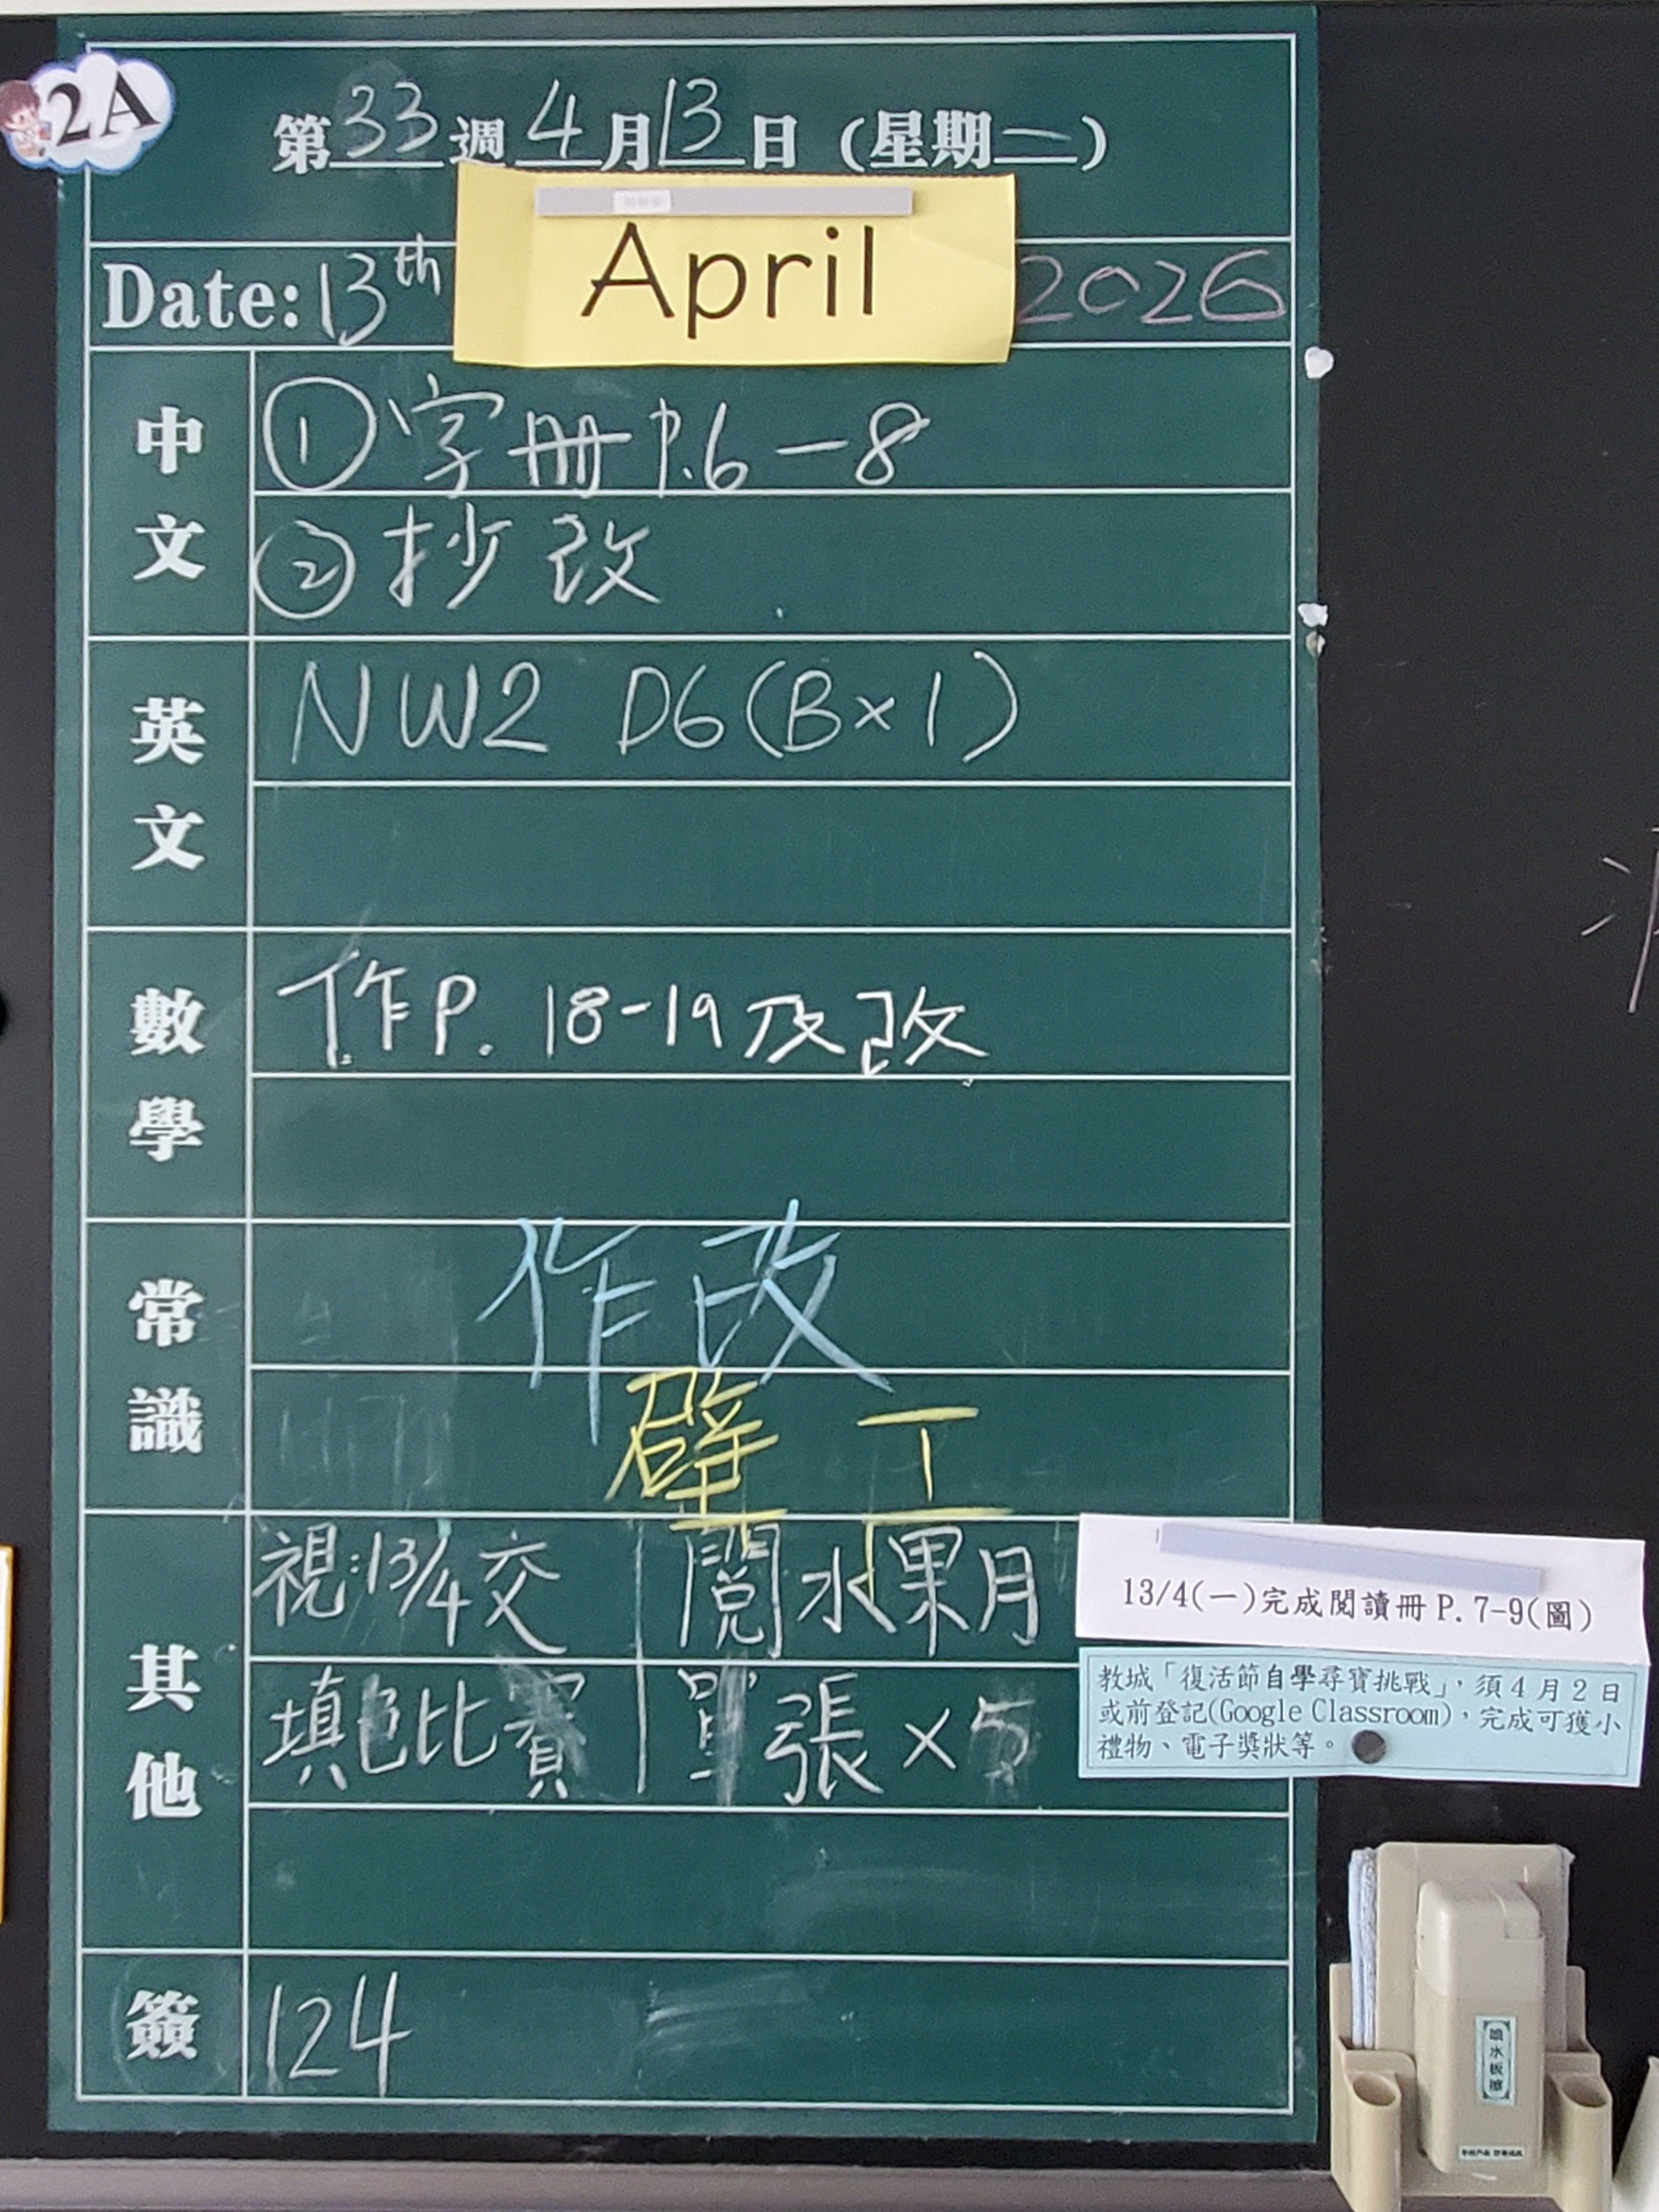 2A
第33週4月13日(星期一)
Date: 13th April 2026
中文
①字冊P.6-8
②抄改
英文
NW2 D6(B×1)
數學
作P. 18-19及改
常識
作改
其他
視:13/4交
閱水果月
填色比賽
單張×5
13/4(一)完成閱讀冊P.7-9(圖)
教城「復活節自學尋寶挑戰」,須4月2日
或前登記(Google Classroom),完成可獲小
禮物、電子獎狀等。
簽
124
噴水板擦